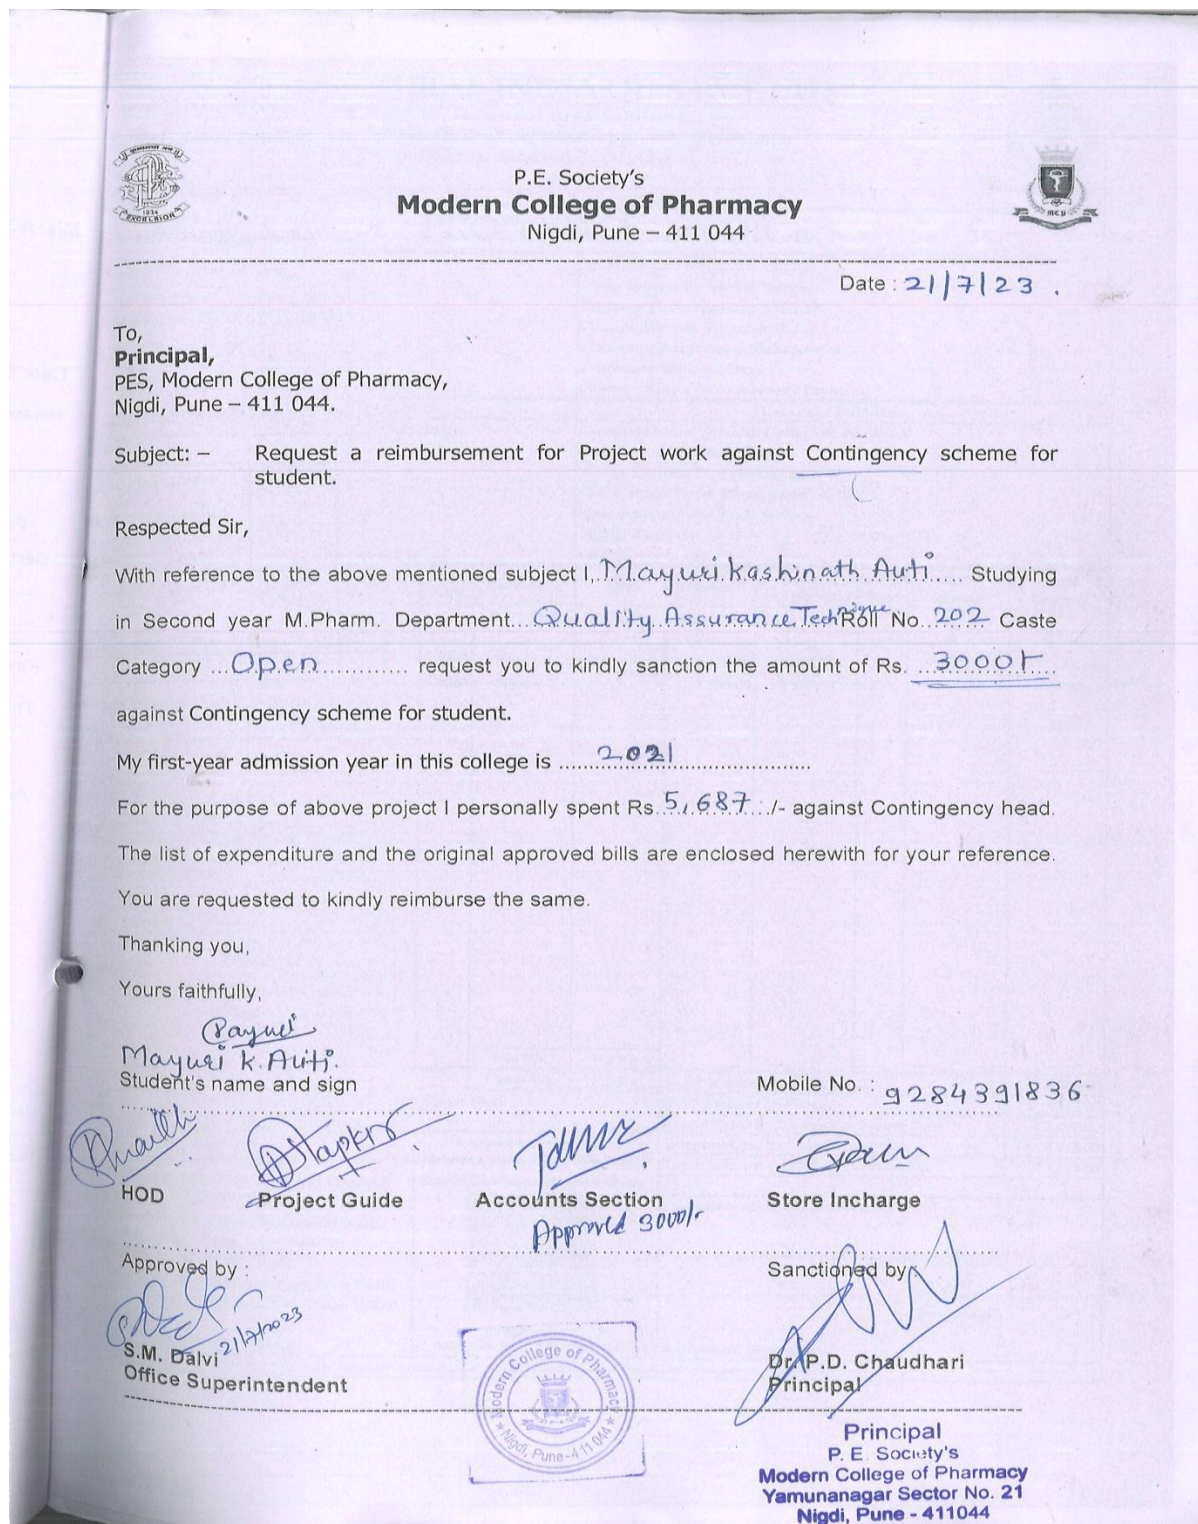 P.E. Society's
Modern College of Pharmacy
Nigdi, Pune – 411 044
1934
EXCELSIOR
MCP
Date : 21/7/23 .
To,
Principal,
PES, Modern College of Pharmacy,
Nigdi, Pune – 411 044.
Subject: – Request a reimbursement for Project work against Contingency scheme for
student.
Respected Sir,
With reference to the above mentioned subject I, Mayuri Kashinath Auti ..... Studying
in Second year M.Pharm. Department... Quality Assurance Technique Roll No..202 Caste
Category ...Open............. request you to kindly sanction the amount of Rs. ..3000/-
against Contingency scheme for student.
My first-year admission year in this college is ......2021..........................
For the purpose of above project I personally spent Rs. 5,687 ../- against Contingency head.
The list of expenditure and the original approved bills are enclosed herewith for your reference.
You are requested to kindly reimburse the same.
Thanking you,
Yours faithfully,
Mayuri K. Auti.
Student's name and sign Mobile No. : 9284391836
HOD Project Guide Accounts Section Store Incharge
Approved 3000/-
Approved by : Sanctioned by
21/7/2023
S.M. Dalvi Dr. P.D. Chaudhari
Office Superintendent Principal
Modern College of Pharmacy
Nigdi, Pune-411 044
Principal
P. E. Society's
Modern College of Pharmacy
Yamunanagar Sector No. 21
Nigdi, Pune - 411044